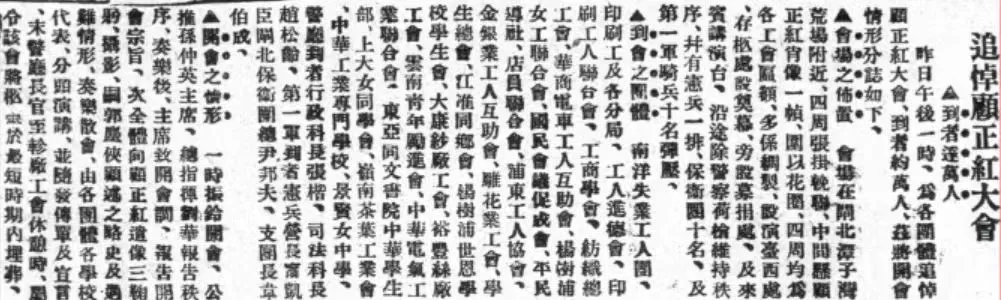 追悼顧正紅大會
▲到者達萬人
昨日午後一時、爲各團體追悼
顧正紅大會、到者約萬人、茲將開會
情形分誌如下、
▲會場之佈置 會場在閘北潭子灣
荒場附近、四周張掛輓聯、中間懸顧
正紅肖像一幀、圍以花圈、四周均爲
各工會匾額、多係綢製、設演臺西處
、存柩處設奠幕、旁設募捐處、及來
賓講演台、沿途除警察荷槍維持秩
序、幷有憲兵一排、保衛團十名、及
第一軍騎兵十名彈壓、
▲到會之團體 南洋失業工人團、
印刷工及各分局、工人進德會、印
刷工人聯合會、工商學會、紡織總
工會、華商電車工人互助會、楊樹浦
女工聯合會、國民會議促成會、平民
導社、店員聯合會、浦東工人協會、
金銀業工人互助會、雕花業工會、學
生總會、江淮同鄉會、楊樹浦世恩學
校學生會、大康紗廠工會、裕豐絲廠
工會、雲南靑年勵進會、中華電氣工
業聯合會、東亞同文書院中華學生
部、上大女同學會、嶺南茶葉工業會
、中華工業專門學校、景賢女中學、
警廳到者行政科長張楷、司法科長
趙松齡、第一軍到者憲兵營長富凱
臣、閘北保衛團總尹邦夫、支團長韋
伯成、
▲開會之情形 一時振鈴開會、公
推孫仲英主席、總指揮劉華報告秩
序、奏樂後、主席致開會詞、報告開
會宗旨、次全體向顧正紅遺像三鞠
躬、攝影、嗣郭塵俠顧述之略史及遇
難情形、奏樂散會、由各團體各學校
代表、分頭演講、並隨發傳單及宣言
、末警廳長官至紗廠工會休憩時、
令該會將柩 於最短時期內埋葬、